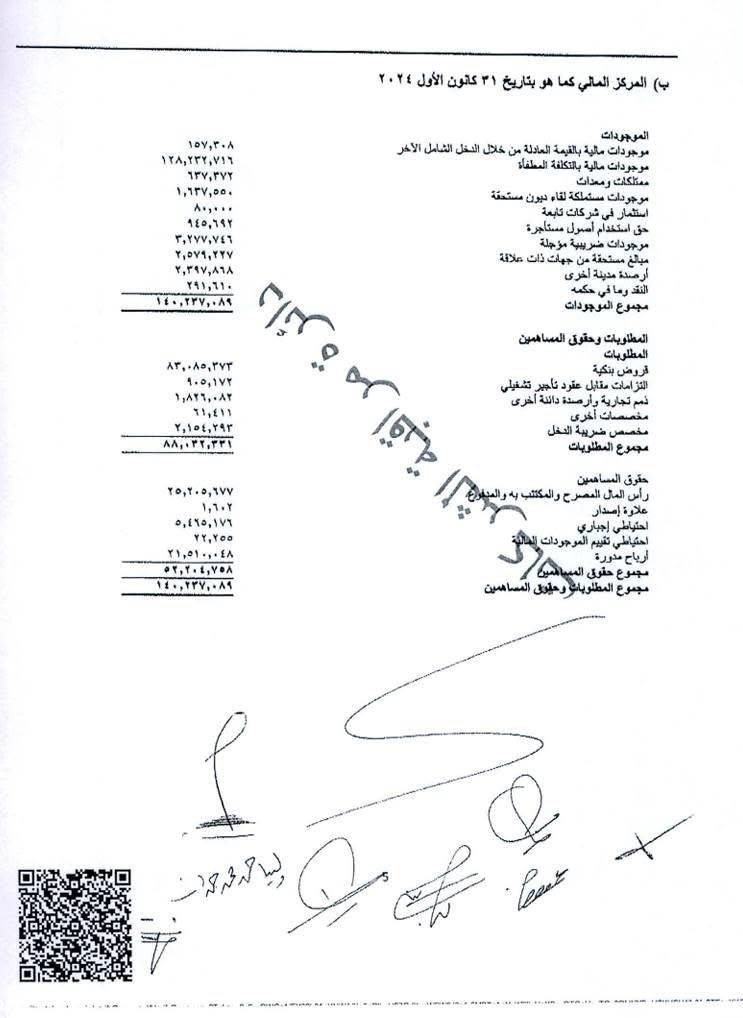 ب) المركز المالي كما هو بتاريخ ٣١ كانون الأول ٢٠٢٤
الموجودات
موجودات مالية بالقيمة العادلة من خلال الدخل الشامل الآخر ١٥٧,٣٠٨
موجودات مالية بالتكلفة المطفأة ١٢٨,٢٣٢,٧١٦
ممتلكات ومعدات ٦٣٧,٣٧٢
موجودات مستملكة لقاء ديون مستحقة ١,٦٣٧,٥٥٠
استثمار في شركات تابعة ٨٠,٠٠٠
حق استخدام أصول مستأجرة ٩٤٥,٦٩٢
موجودات ضريبية مؤجلة ٣,٢٧٧,٧٤٦
مبالغ مستحقة من جهات ذات علاقة ٢,٥٧٩,٢٢٧
أرصدة مدينة أخرى ٢,٣٩٧,٨٦٨
النقد وما في حكمه ٢٩١,٦١٠
مجموع الموجودات ١٤٠,٢٣٧,٠٨٩
المطلوبات وحقوق المساهمين
المطلوبات
قروض بنكية ٨٣,٠٨٥,٣٧٣
التزامات مقابل عقود تأجير تشغيلي ٩٠٥,١٧٢
ذمم تجارية وأرصدة دائنة أخرى ١,٨٢٦,٠٨٢
مخصصات أخرى ٦١,٤١١
مخصص ضريبة الدخل ٢,١٥٤,٢٩٣
مجموع المطلوبات ٨٨,٠٣٢,٣٣١
حقوق المساهمين
رأس المال المصرح والمكتتب به والمدفوع ٢٥,٢٠٥,٦٧٧
علاوة إصدار ١,٦٠٢
احتياطي إجباري ٥,٤٦٥,١٧٦
احتياطي تقييم الموجودات المالية ٢٢,٢٥٥
أرباح مدورة ٢١,٥١٠,٠٤٨
مجموع حقوق المساهمين ٥٢,٢٠٤,٧٥٨
مجموع المطلوبات وحقوق المساهمين ١٤٠,٢٣٧,٠٨٩
دائرة مراقبة الشركات